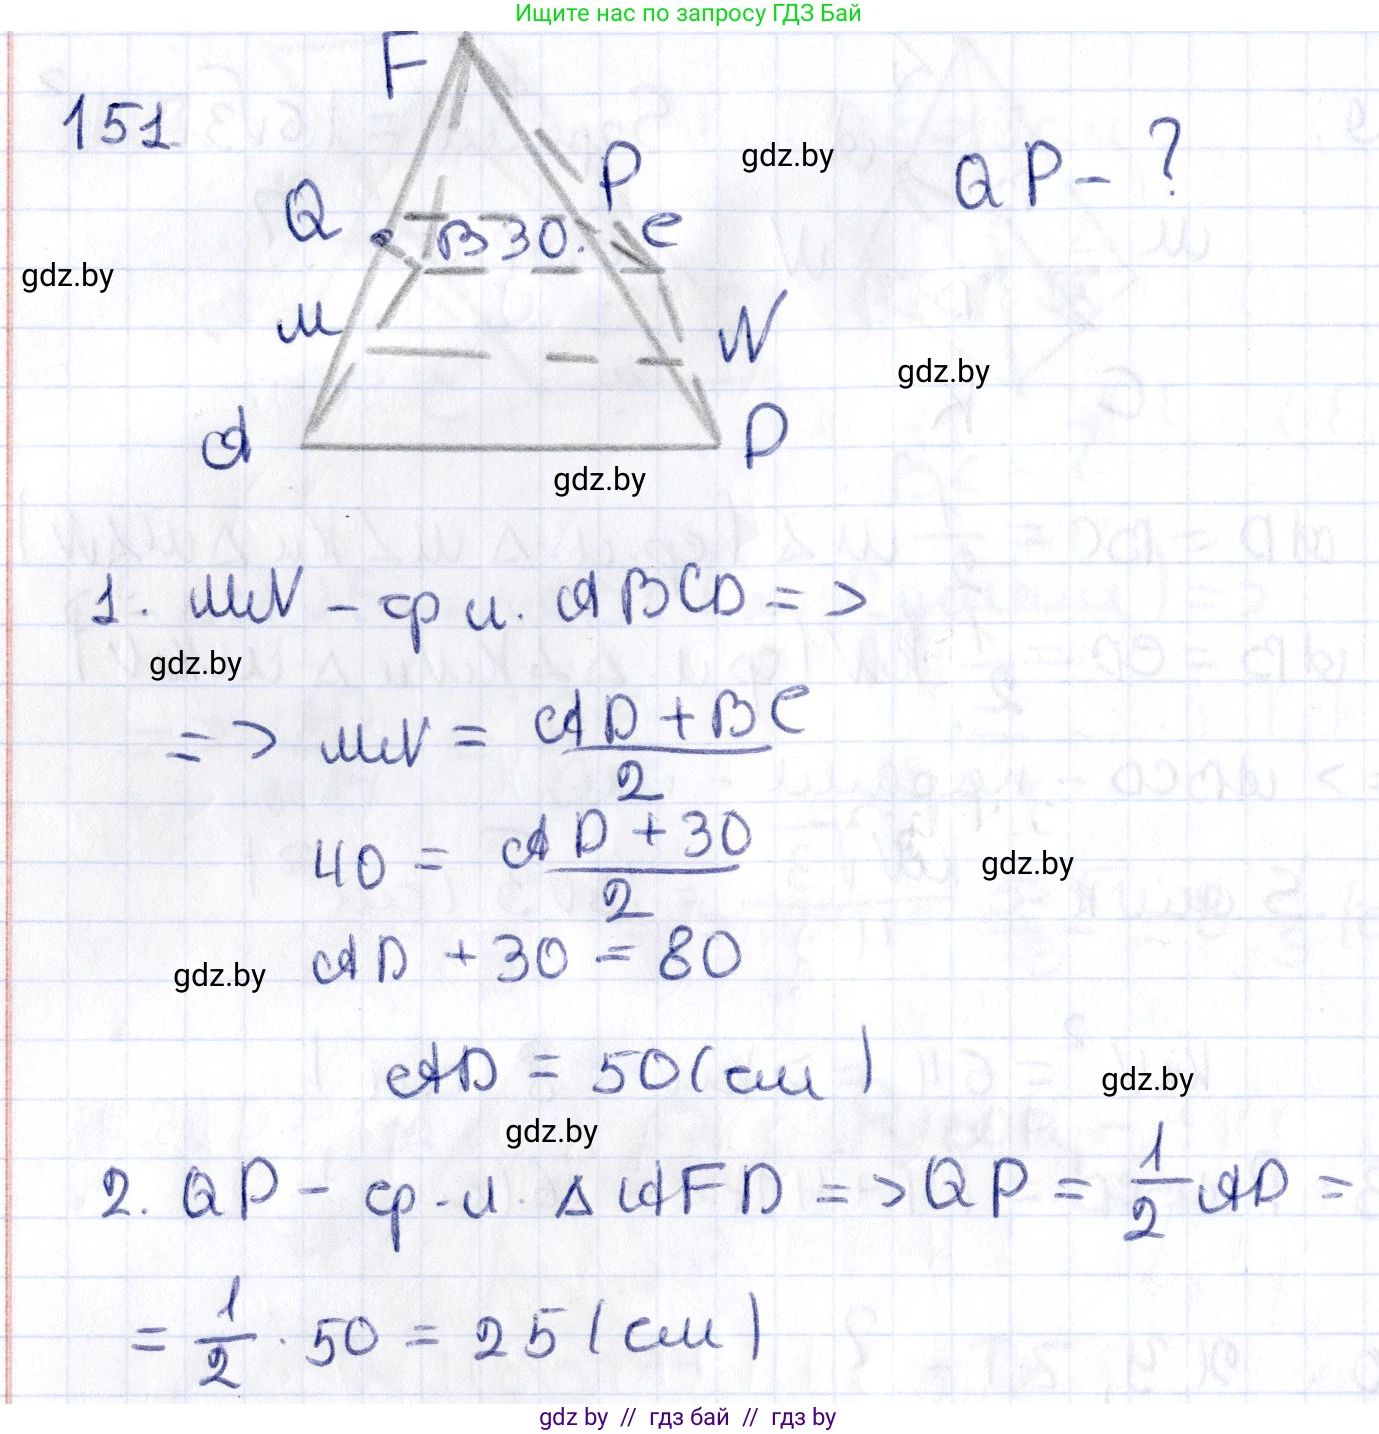 Ищите нас по запросу ГДЗ Бай
151
F
P
gdz.by
QP - ?
Q
B 30.
C
gdz.by
M
N
gdz.by
A
D
gdz.by
1. MN - ср л. ABCD =>
gdz.by
=> MN = AD + BC / 2
40 = AD + 30 / 2
gdz.by
AD + 30 = 80
gdz.by
AD = 50 (см)
gdz.by
gdz.by
2. QP - ср. л. Δ AFD => QP = 1/2 AD =
= 1/2 · 50 = 25 (см)
gdz by // гдз бай // гдз by